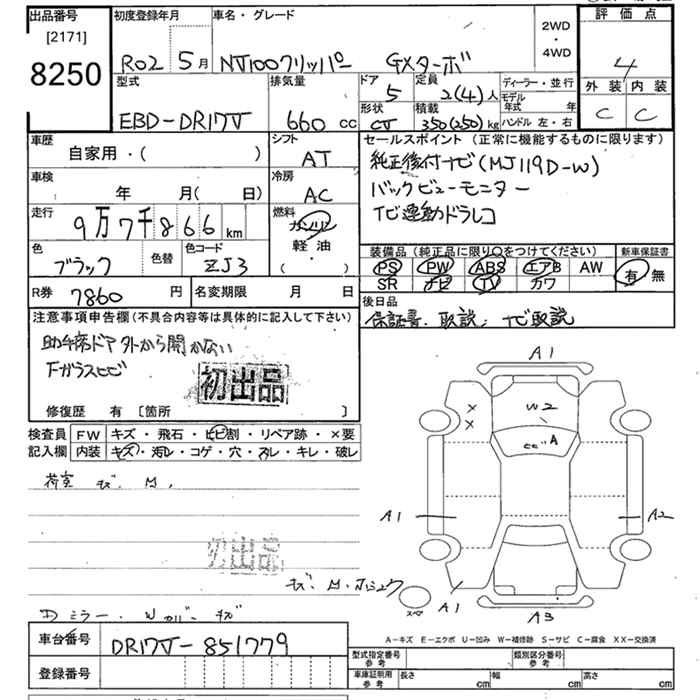 出品番号
[2171]
8250
初度登録年月
R02 5月
車名・グレード
NT100クリッパー GXターボ
2WD
・
4WD
評価点
4
外装 内装
C C
型式
EBD-DR17V
排気量
660 cc
ドア
5
形状
CV
定員
2(4)人
積載
350(250)kg
ディーラー・並行
モデル年式 年
ハンドル 左・右
車歴
自家用・( )
シフト
AT
車検
年 月( 日)
冷房
AC
走行
9万7千866km
燃料
ガソリン
軽油
( ・ )
色
ブラック
色替
色コード
ZJ3
R券
7860円
名変期限 月 日
セールスポイント(正常に機能するものに限ります)
純正後付ナビ(MJ119D-W)
バックビューモニター
ナビ連動ドラレコ
装備品(純正品に限り○をつけてください)
PS PW ABS エアB AW
SR ナビ TV カワ
新車保証書
有・無
後日品
保証書、取説、ナビ取説
注意事項申告欄(不具合内容等は具体的に記入して下さい)
助手席ドア外から開かない
Fガラスヒビ
初出品
修復歴 有 [箇所 ]
検査員記入欄
FW キズ・飛石・ヒビ割・リペア跡・×要
内装 キズ・汚レ・コゲ・穴・スレ・キレ・破レ
荷室 キズ M,
初出品
Dミラー、Wカバーキズ
A1
W2
A
A1
A2
A1
A3
スペア
A-キズ E-エクボ U-凹み W-補修跡 S-サビ C-腐食 XX-交換済
車台番号
DR17V-851779
登録番号
型式指定番号
参考
類別区分番号
参考
車庫証明用
参考
長さ cm
幅 cm
高さ cm